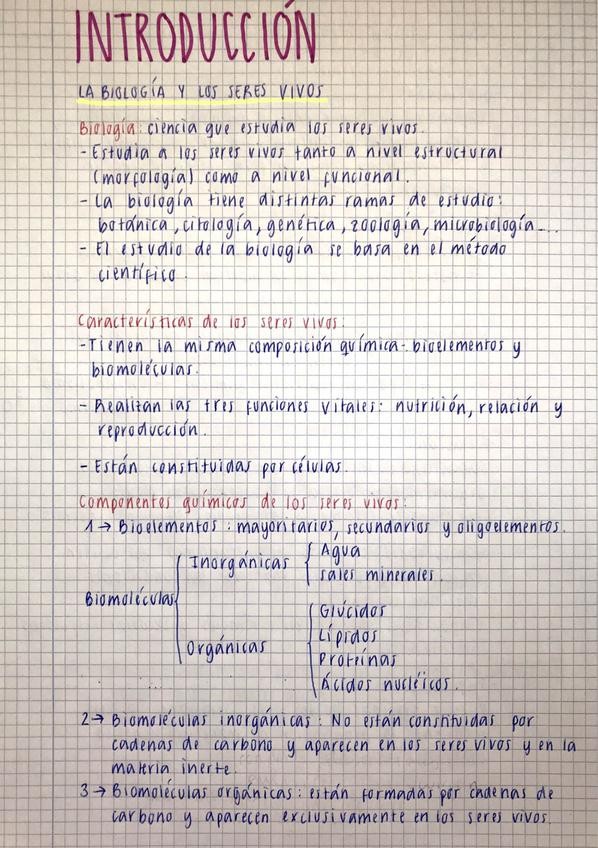 INTRODUCCIÓN
LA BIOLOGÍA Y LOS SERES VIVOS
Biología: ciencia que estudia los seres vivos.
- Estudia a los seres vivos tanto a nivel estructural
(morfología) como a nivel funcional.
- La biología tiene distintas ramas de estudio:
botánica, citología, genética, zoología, microbiología...
- El estudio de la biología se basa en el método
científico.
Características de los seres vivos:
- Tienen la misma composición química - bioelementos y
biomoléculas.
- Realizan las tres funciones vitales: nutrición, relación y
reproducción.
- Están constituidas por células.
Componentes químicos de los seres vivos:
1 → Bioelementos: mayoritarios, secundarios y oligoelementos.
Biomoléculas
Inorgánicas
Agua
sales minerales.
Orgánicas
Glúcidos
Lípidos
Proteínas
Ácidos nucléicos.
2 → Biomoléculas inorgánicas: No están constituidas por
cadenas de carbono y aparecen en los seres vivos y en la
materia inerte.
3 → Biomoléculas orgánicas: están formadas por cadenas de
carbono y aparecen exclusivamente en los seres vivos.